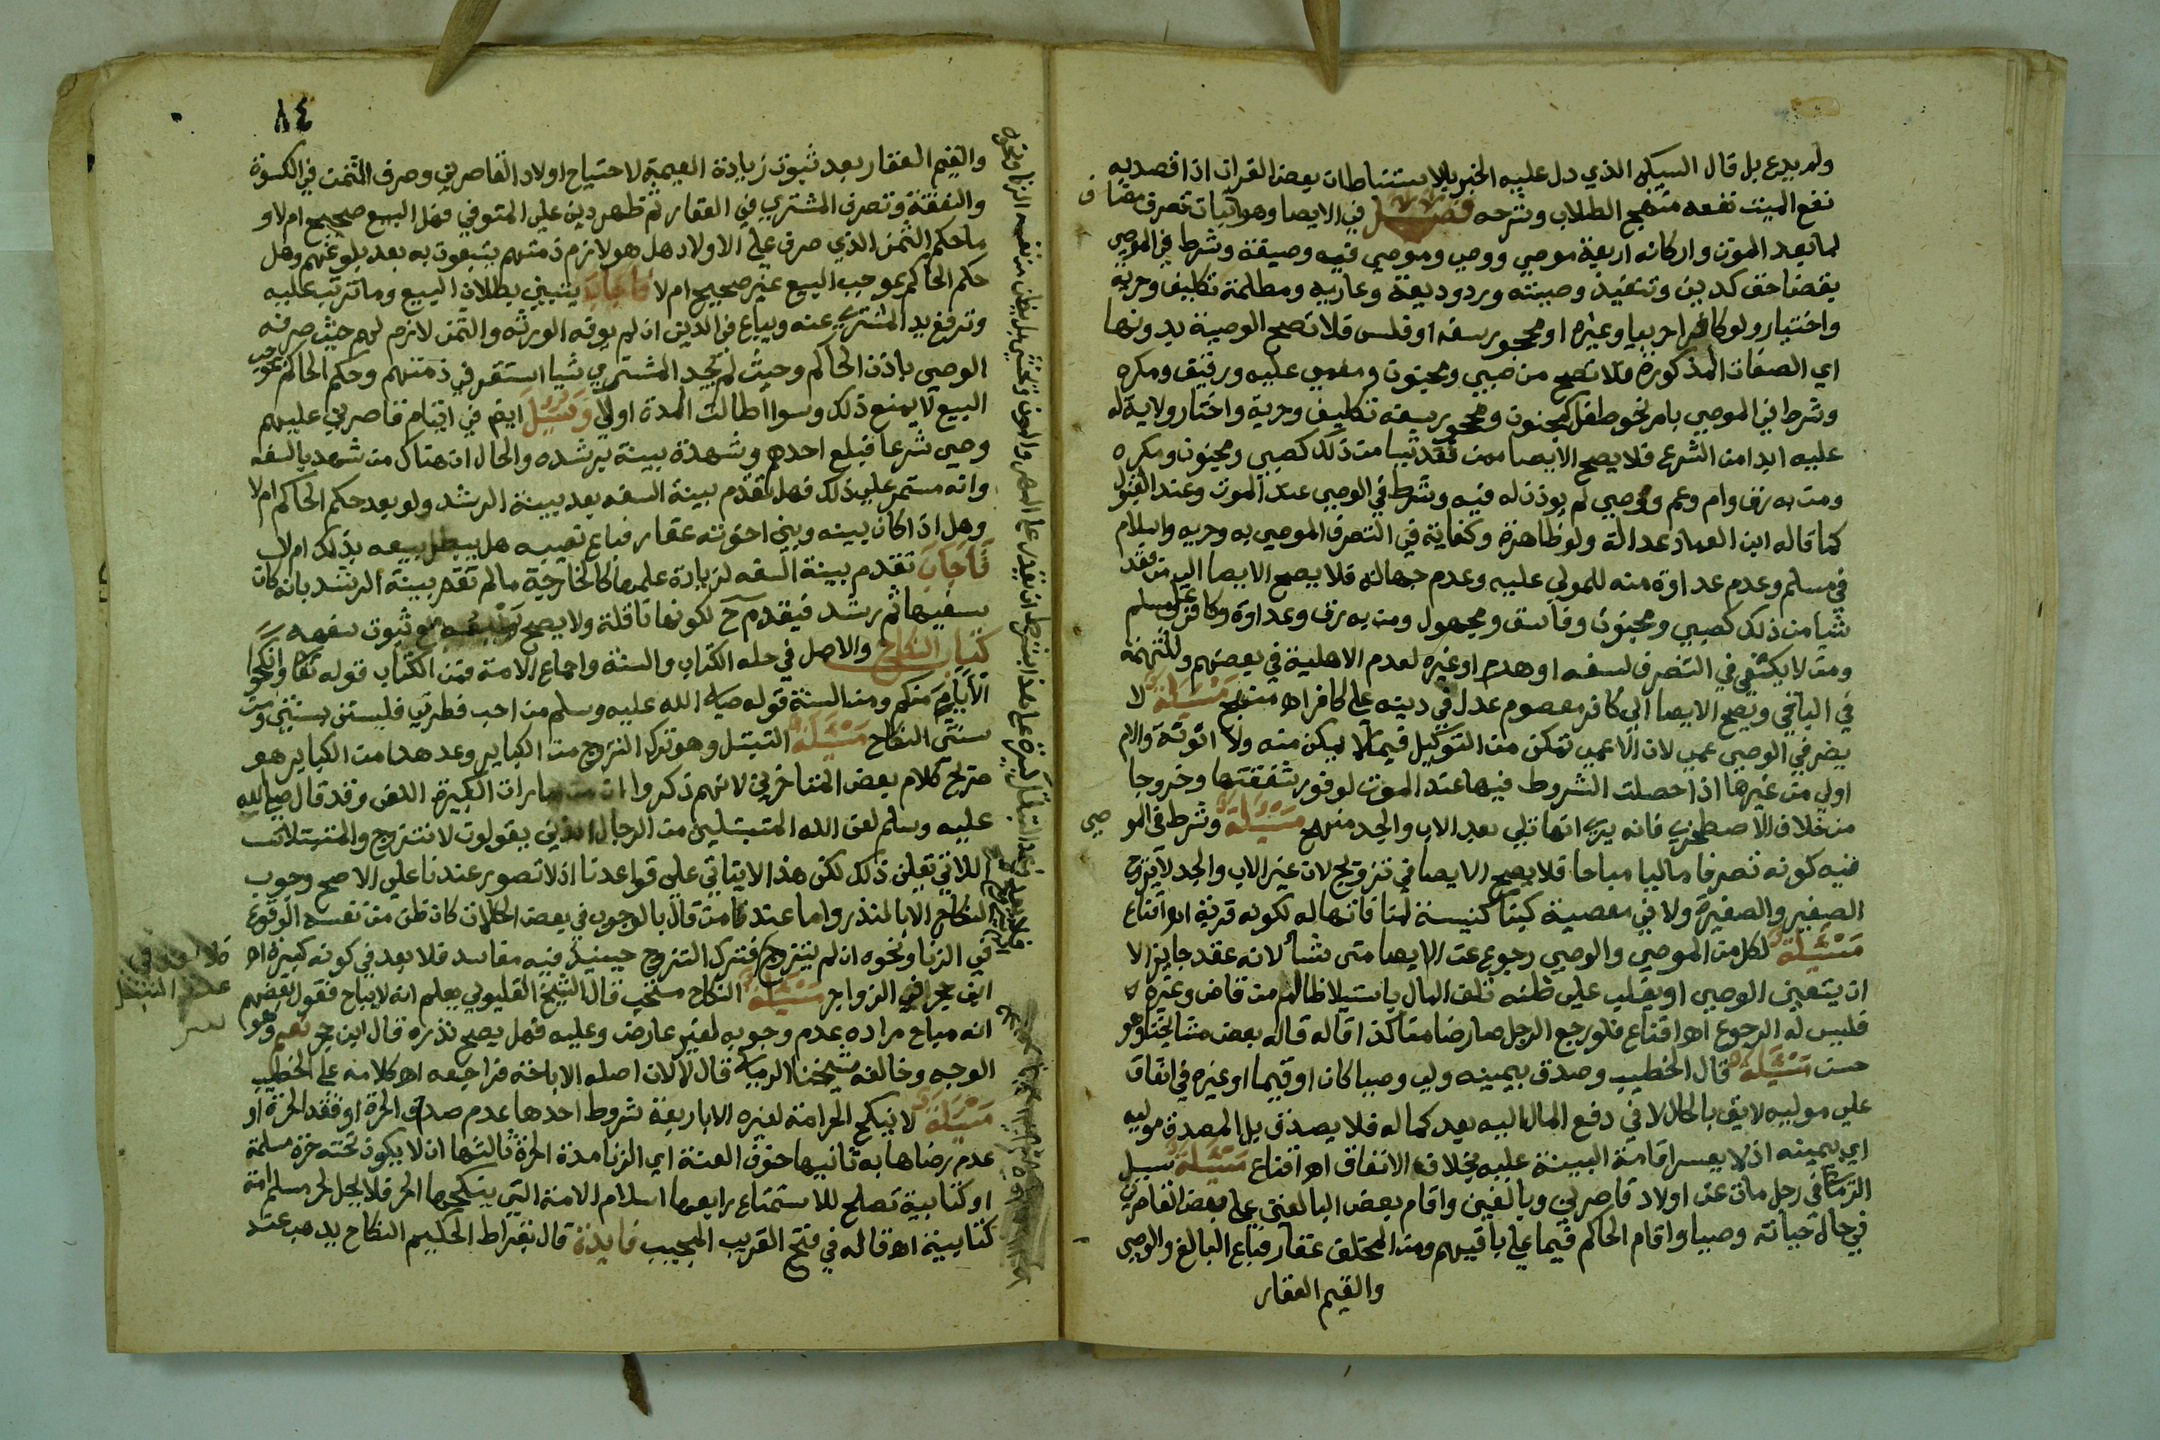 ولم يدع بل قال السبكي الذي دل عليه الخبر بالاستنباطات بعض القران اذا قصد به
نفع الميت نفعه منهج الطلاب وشرحه فصل في الايصا وهو اثبات تصرف مضاف
لما بعد الموت واركانه اربعة موصي ووصي وموصي فيه وصيغة وشرط في الموصي
بقضا حق كدين وتنفيذ وصيته ورد وديعة وعارية ومظلمة تكليف وحرية
واختيار ولو كافرا حربيا وغيره او محجور سفه او فلس فلا تصح الوصية بدونها
اي الصفات المذكورة فلا تصح من صبي ومجنون ومغمي عليه ورقيق ومكره
وشرط في الموصي بامر نحو طفل كمجنون ومحجور سفه تكليف وحرية واختار وولاية له
عليه ابدا من الشرع فلا يصح الايصا ممن فقد شيا من ذلك كصبي ومجنون ومكره
ومن به رق وام وعم ووصي لم يوذن له فيه وشرط في الوصي عند الموت وعند القبول
كما قاله ابن العماد عدالة ولو ظاهرة وكفاية في التصرف الموصي به وحرية واسلام
في مسلم وعدم عداوة منه للمولي عليه وعدم جهالة فلا يصح الايصا الي من فقد
شيا من ذلك كصبي ومجنون وفاسق ومجهول ومن به رق وعداوة وكافر علي مسلم
ومن لا يكتفي في التصرف لسفه او هدم او غيره لعدم الاهلية في بعضهم وللتهمة
في الباقي ويصح الايصا الي كافر معصوم عدل في دينه علي كافر اه منهج مسئلة لا
يضر في الوصي عمي لان الاعمي تمكن من التوكيل فيما لا يمكن منه ولا انوثة والام
اولي من غيرها اذا حصلت الشروط فيها عند الموت لوفور شفقتها وخروجا
من خلاف الاصطخري فانه يري انها تلي بعد الاب والجد منهج مسئلة وشرط في الموصي
فيه كونه تصرفا ماليا مباحا فلا يصح الايصا في تزويج لان غير الاب والجد لا يزوج
الصغير والصغيرة ولا في معصية كبنا كنيسة لمنافاتها له لكونه قربة اه اقناع
مسئلة لكل من الموصي والوصي رجوع عن الايصا متى شا لانه عقد جايز الا
ان يتعين الوصي او يغلب علي ظنه تلف المال باستيلا ظالم من قاض وغيره
فليس له الرجوع اه اقناع فلو رجع الرجل صار ضامنا كذا قاله بعض مشايخنا وهو
حسن مسئلة قال الخطيب وصدق بيمينه ولي وصيا كان او قيما او غيره في انفاق
علي موليه لايق بالحال لا في دفع المال اليه بعد كماله فلا يصدق بل المصدق موليه
اي بيمينه اذ لا يعسر اقامة البينة عليه بخلاف الانفاق اه اقناع مسئلة سيل
الرملي في رجل مات عن اولاد قاصرين وبالغين واقام بعض البالغين علي بعض القاصرين
في حال حياته وصيا واقام الحاكم قيما علي باقيهم ومن المخلف عقار فباع البالغ والوصي
والقيم العقار
٨٤
والقيم العقار بعد ثبوت زيادة القيمة لاحتياج اولاد القاصرين وصرف الثمن في الكسوة
والنفقة وتصرف المشتري في العقار ثم ظهر دين علي المتوفي فهل البيع صحيح ام لا و
ما حكم الثمن الذي صرف علي الاولاد هل هو لازم ذمتهم يتبعون به بعد بلوغهم وهل
حكم الحاكم بموجب البيع غير صحيح ام لا فاجاب يتبين بطلان البيع وما ترتب عليه
وترفع يد المشتري عنه ويباع في الدين ان لم يوفه الورثه والثمن لازم لهم حيث صرفه
الوصي باذن الحاكم وحيث لم يجد المشتري شيا استقر في ذمتهم وحكم الحاكم بموجب
البيع لا يمنع ذلك وسوا اطالت المدة اولا وسيل ايضا في ايتام قاصرين عليهم
وصي شرعا فبلغ احدهم وشهدة بينة برشده والحال ان هناك من شهد بالسفه
وانه مستمر علي ذلك فهل تقدم بينة السفه بعد بينة الرشد ولو بعد حكم الحاكم ام لا
وهل اذا كان بينه وبين اخوته عقار فباع نصيبه هل يبطل بيعه بذلك ام لا
فاجاب تقدم بينة السفه لزيادة علمها كالخارجية ما لم تقم بينة الرشد بانه كان
سفيها ثم رشد فيقدم ح لكونها ناقلة ولا يصح بيعه مع ثبوت سفهه
كتاب النكاح والاصل في حله الكتاب والسنة واجماع الامة فمن الكتاب قوله تعا وانكحوا
الايامى منكم ومن السنة قوله صلى الله عليه وسلم من احب فطرتي فليستن بسنتي ومن
سنتي النكاح مسئلة التبتل وهو ترك التزوج من الكباير وعد هذا من الكباير هو
صريح كلام بعض المتاخرين لانهم ذكروا ان من امارات الكبيرة اللعن وقد قال صلى الله
عليه وسلم لعن الله المتبتلين من الرجال الذين يقولون لا نتزوج والمتبتلات
اللاتي تقلن ذلك لكن هذا لا يتاتي علي قواعدنا اذ لا تصور عندنا علي الاصح وجوب
النكاح الا بالنذر واما عند من قال بالوجوب في بعض الحالات كان ظن من نفسه الوقوع
في الزنا ونحوه ان لم يتزوج فترك التزوج حينيذ فيه مفاسد فلا بعد في كونه كبيرة اه
ابن حجر في الزواجر مسئلة النكاح مستحب قال الشيخ القليوبي يعلم انه لا يباح فقول بعضهم
انه مباح مراده عدم وجوبه لغير عارض وعليه فهل يصح نذره قال ابن حجر نعم وهو
الوجه وخالفه شيخنا الرملي قال لا لان اصله الاباحة فراجعه اه كلامه علي الخطيب
مسئلة لا ينكح الحر امة لغيره الا باربعة شروط احدها عدم صداق الحرة او فقد الحرة او
عدم رضاها به ثانيها خوف العنت اي الزنا مدة الحرة ثالثها ان لا يكون تحته حرة مسلمة
او كتابية تصلح للاستمتاع رابعها اسلام الامة التي ينكحها الحر فلا يحل لحر مسلم امة
كتابية اه قاله في فتح القريب المجيب فايدة قال بقراط الحكيم النكاح يدهب عند